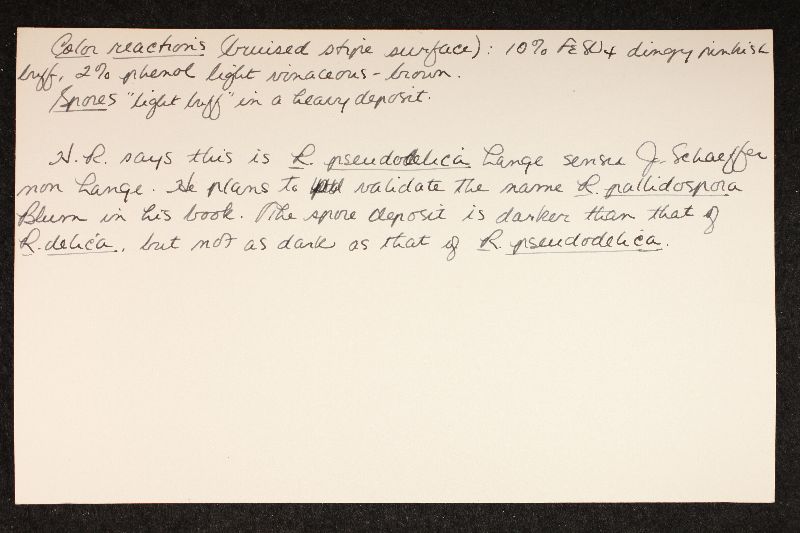 Color reactions (bruised stipe surface): 10% FeSO4 dingy pinkish
buff, 2% phenol light vinaceous-brown.
Spores "light buff" in a heavy deposit.
H.R. says this is R. pseudodelica Lange sensu J. Schaeffer
non Lange. He plans to validate the name R. pallidospora
Blum in his book. The spore deposit is darker than that of
R. delica, but not as dark as that of R. pseudodelica.